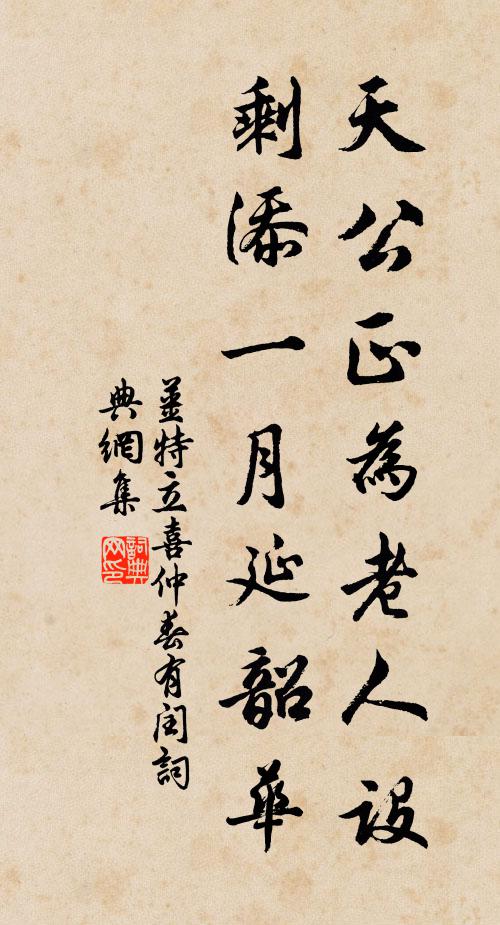 天公正為老人設
剩添一月延韶華
姜特立喜仲春有閏詞
典網集
詞典
网印